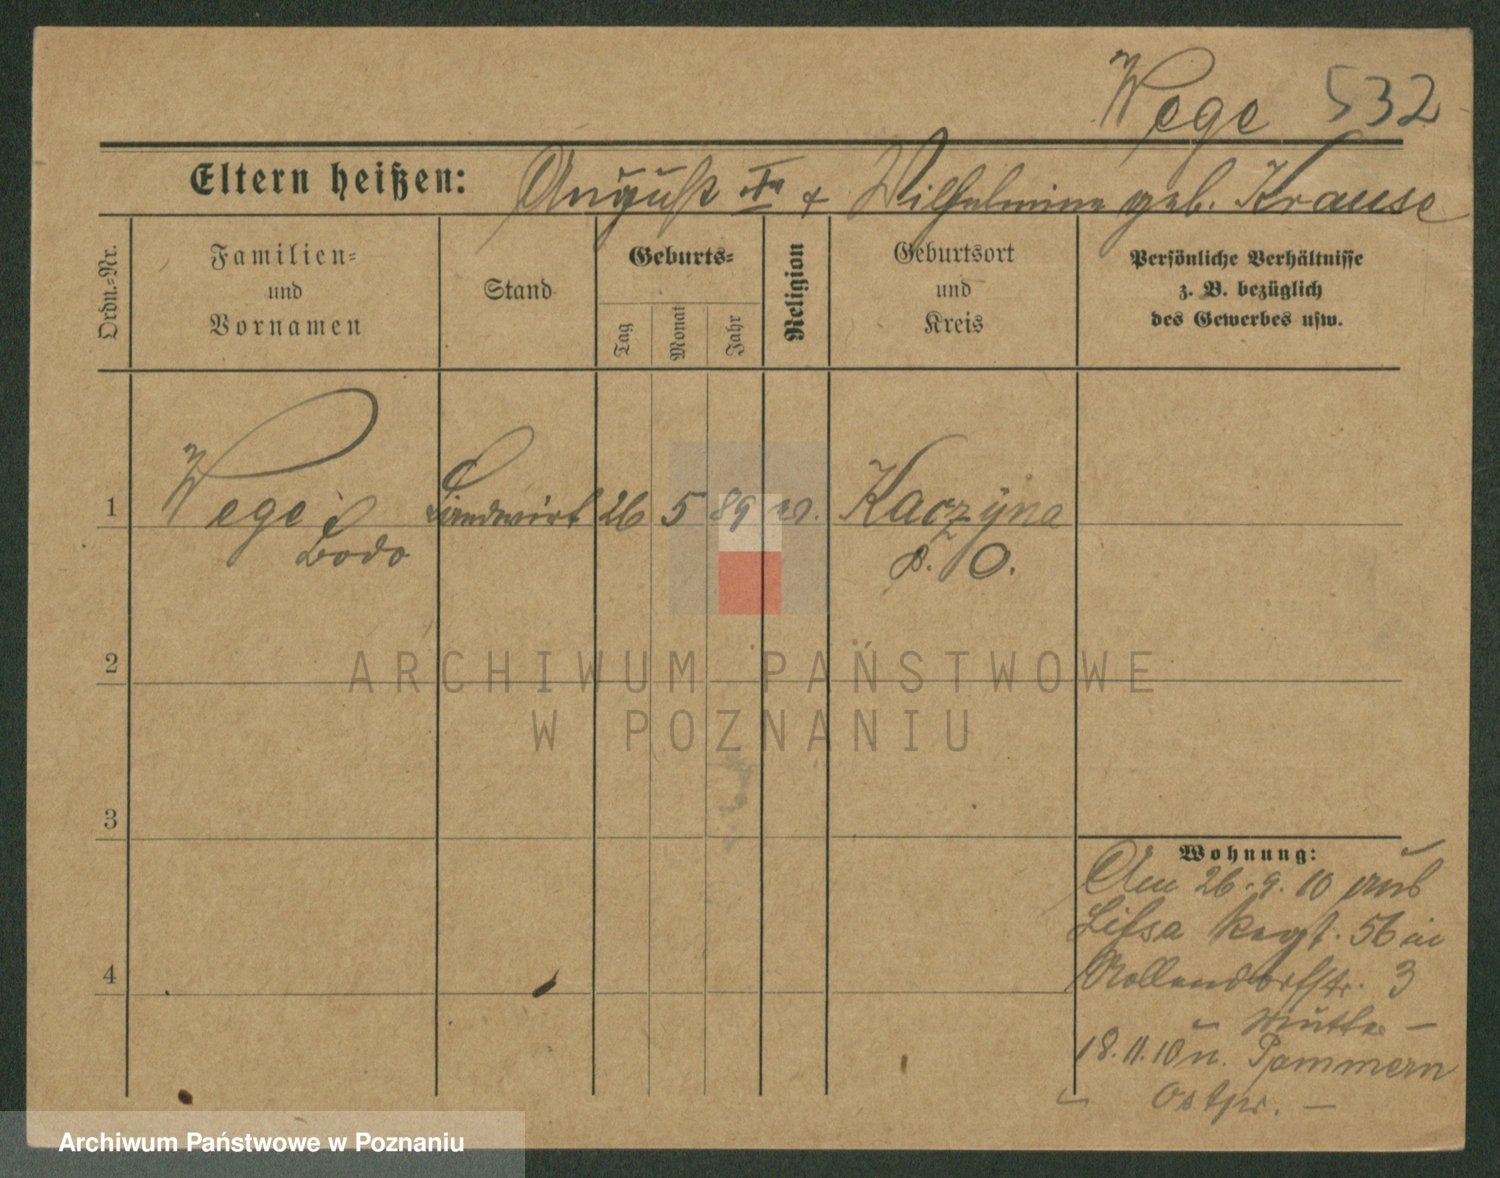 Wege 532
Eltern heißen: August & Wilhelmine geb. Krause
Ordn.=Nr.
Familien=
und
Vornamen
Stand
Geburts=
Tag
Monat
Jahr
Religion
Geburtsort
und
Kreis
Persönliche Verhältnisse
z. B. bezüglich
des Gewerbes usw.
1 Wege Landwirt 26 5 89 Kaczyna
Bodo P. O.
2
3
4
Wohnung:
Am 26.9.10 aus
Lissa Regt. 56 in
Nollendorfstr. 3
Mutter –
18.11.10 n. Pammern
Ostpr. –
ARCHIWUM PAŃSTWOWE
W POZNANIU
Archiwum Państwowe w Poznaniu